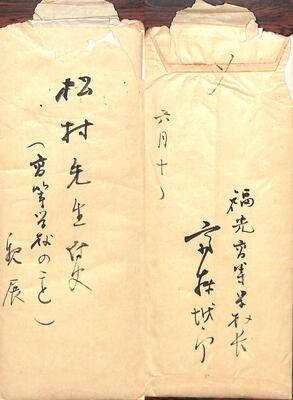 松村先生侍史
（高等学校のこと）
親展
六月十
福光高等学校長